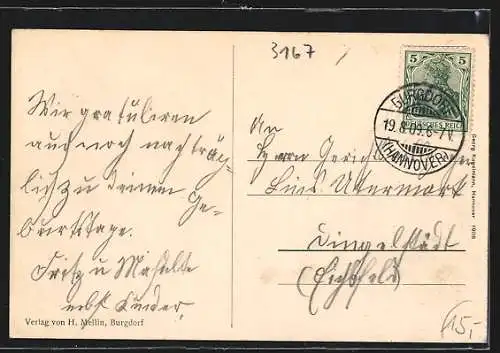 3167
Wir gratulieren
auch noch nachträg-
lich zu deinem Ge-
burtstage.
Fritz u Mathilde
nebst Kinder.
Verlag von H. Mellin, Burgdorf
5 5
DEUTSCHES REICH
BURGDORF
19.8.09.6-7N.
(HANNOVER)
An
Herrn
Dingelstädt
(Eichsfeld)
Hannover 1908
15,-